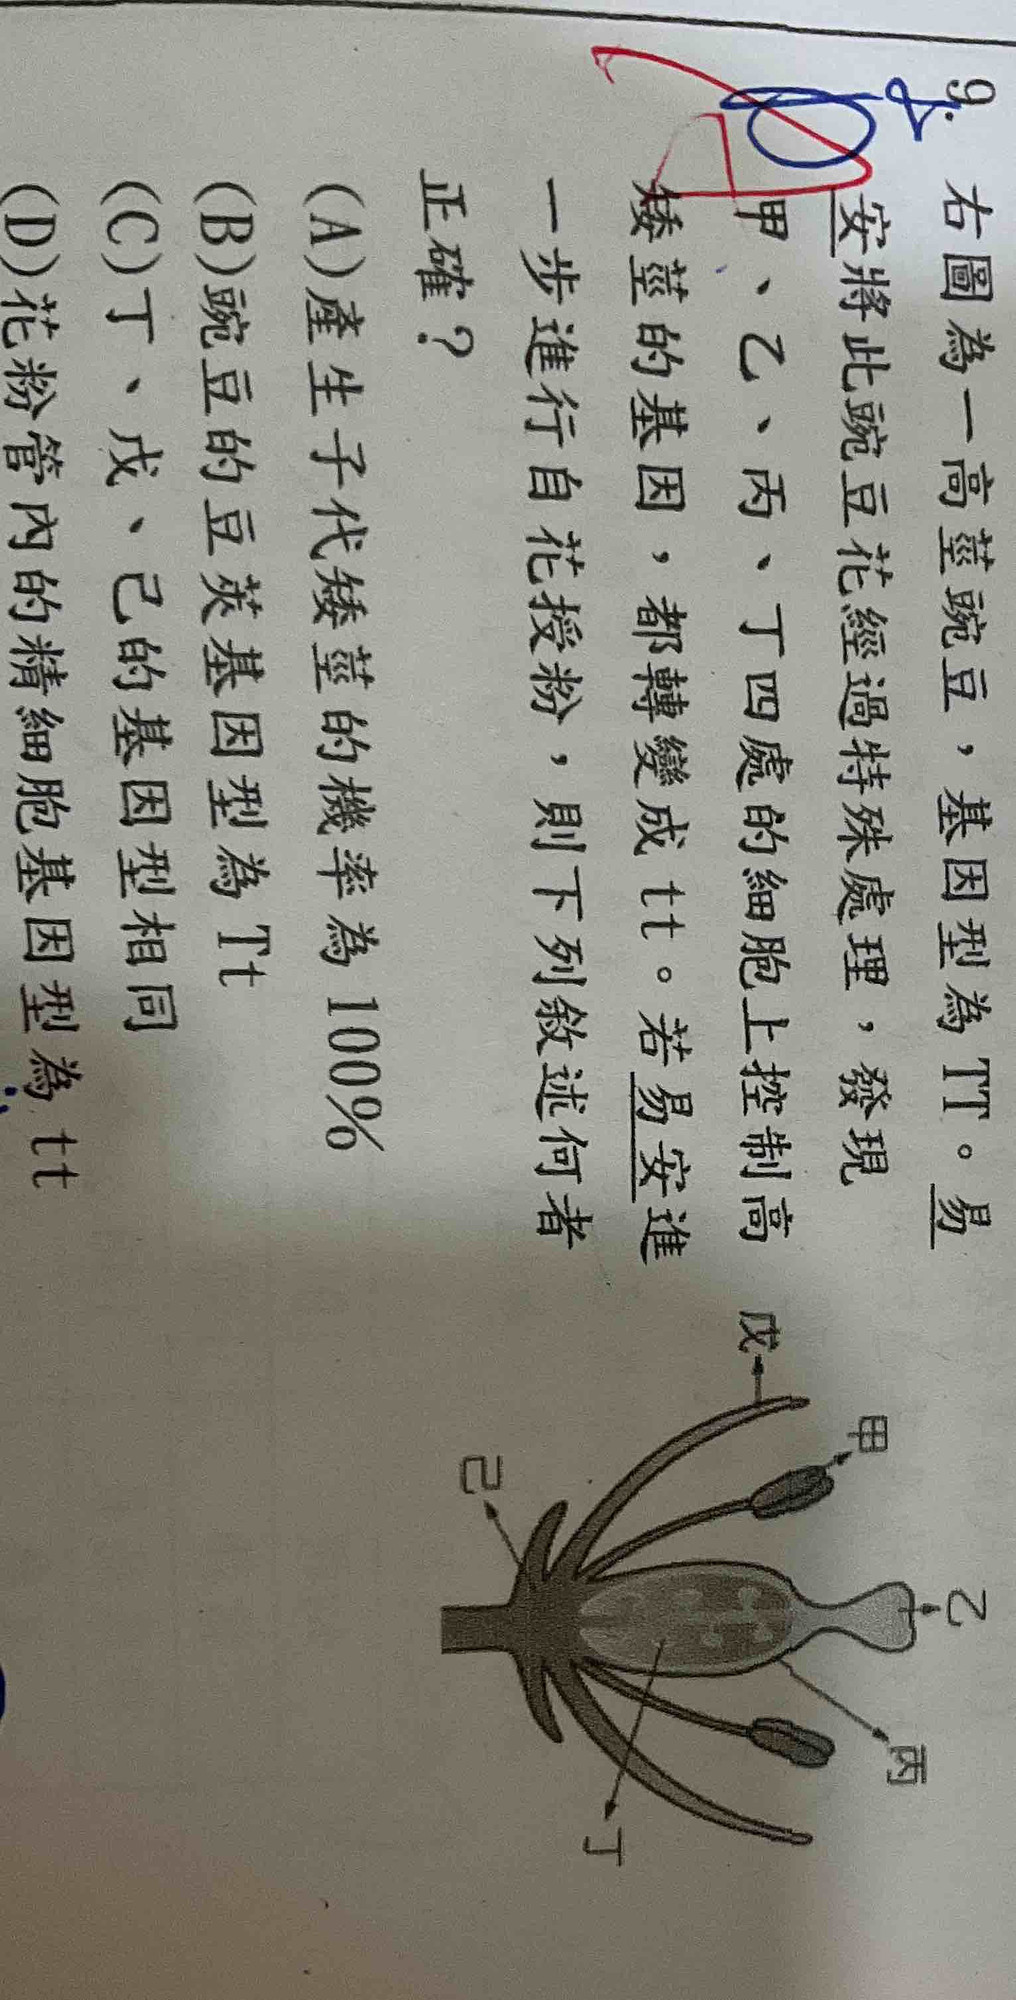 9. 右圖為一高莖豌豆，基因型為 TT。易
安將此豌豆花經過特殊處理，發現
甲、乙、丙、丁四處的細胞上控制高
矮莖的基因，都轉變成 tt。若易安進
一步進行自花授粉，則下列敘述何者
正確？
(A)產生子代矮莖的機率為 100%
(B)豌豆的豆莢基因型為 Tt
(C)丁、戊、己的基因型相同
(D)花粉管內的精細胞基因型為 tt
戊
甲
乙
丙
丁
己